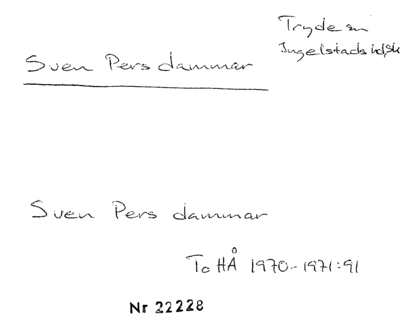 Tryde sn
Ingelstads hd, Sk
Sven Pers dammar
Sven Pers dammar
To HÅ 1970-1971:91
Nr 22228